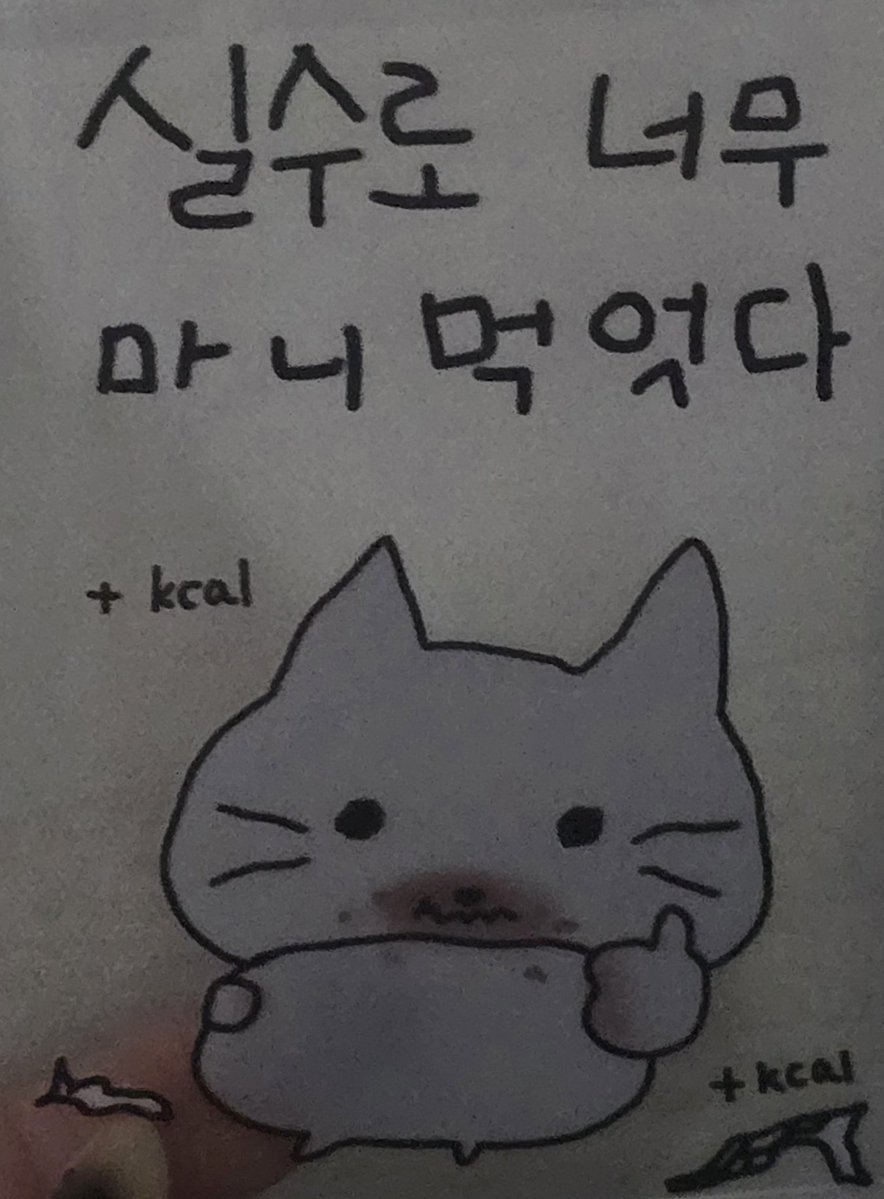 실수로 너무
마니 먹엇다
+ kcal
+ kcal